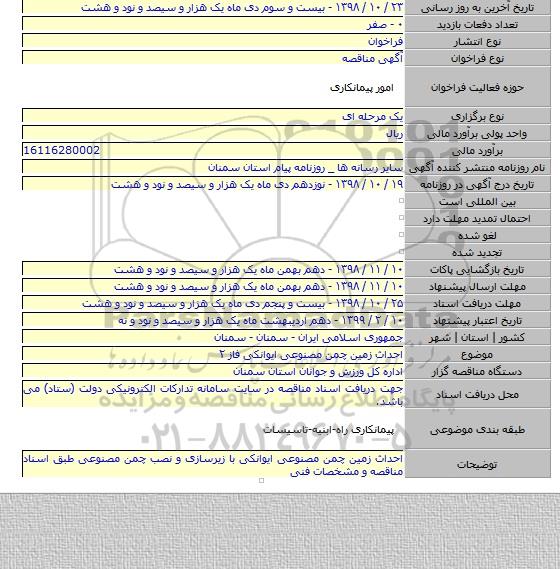 تاریخ آخرین به روز رسانی ۲۳ / ۱۰ / ۱۳۹۸ - بیست و سوم دی ماه یک هزار و سیصد و نود و هشت
تعداد دفعات بازدید ۰ - صفر
نوع انتشار فراخوان
نوع فراخوان آگهی مناقصه
حوزه فعالیت فراخوان امور پیمانکاری
نوع برگزاری یک مرحله ای
واحد پولی برآورد مالی ریال
برآورد مالی 16116280002
نام روزنامه منتشر کننده آگهی سایر رسانه ها _ روزنامه پیام استان سمنان
تاریخ درج آگهی در روزنامه ۱۹ / ۱۰ / ۱۳۹۸ - نوزدهم دی ماه یک هزار و سیصد و نود و هشت
بین المللی است
احتمال تمدید مهلت دارد
لغو شده
تجدید شده
تاریخ بازگشایی پاکات ۱۰ / ۱۱ / ۱۳۹۸ - دهم بهمن ماه یک هزار و سیصد و نود و هشت
مهلت ارسال پیشنهاد ۱۰ / ۱۱ / ۱۳۹۸ - دهم بهمن ماه یک هزار و سیصد و نود و هشت
مهلت دریافت اسناد ۲۵ / ۱۰ / ۱۳۹۸ - بیست و پنجم دی ماه یک هزار و سیصد و نود و هشت
تاریخ اعتبار پیشنهاد ۱۰ / ۲ / ۱۳۹۹ - دهم اردیبهشت ماه یک هزار و سیصد و نود و نه
کشور | استان | شهر جمهوری اسلامی ایران - سمنان - سمنان
موضوع احداث زمین چمن مصنوعی ایوانکی فاز ۲
دستگاه مناقصه گزار اداره کل ورزش و جوانان استان سمنان
محل دریافت اسناد جهت دریافت اسناد مناقصه در سایت سامانه تدارکات الکترونیکی دولت (ستاد) می
باشد.
طبقه بندی موضوعی پیمانکاری راه-ابنیه-تاسیسات
توضیحات احداث زمین چمن مصنوعی ایوانکی با زیرسازی و نصب چمن مصنوعی طبق اسناد
مناقصه و مشخصات فنی
پایگاه اطلاع رسانی مناقصه و مزایده
۰۲۱-۸۸۳۴۹۶۷۰-۵